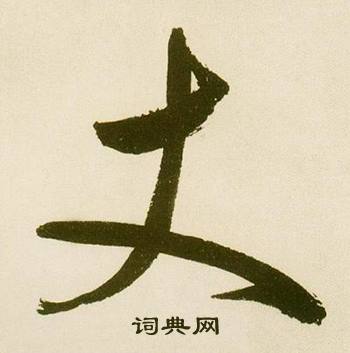 丈
词典网